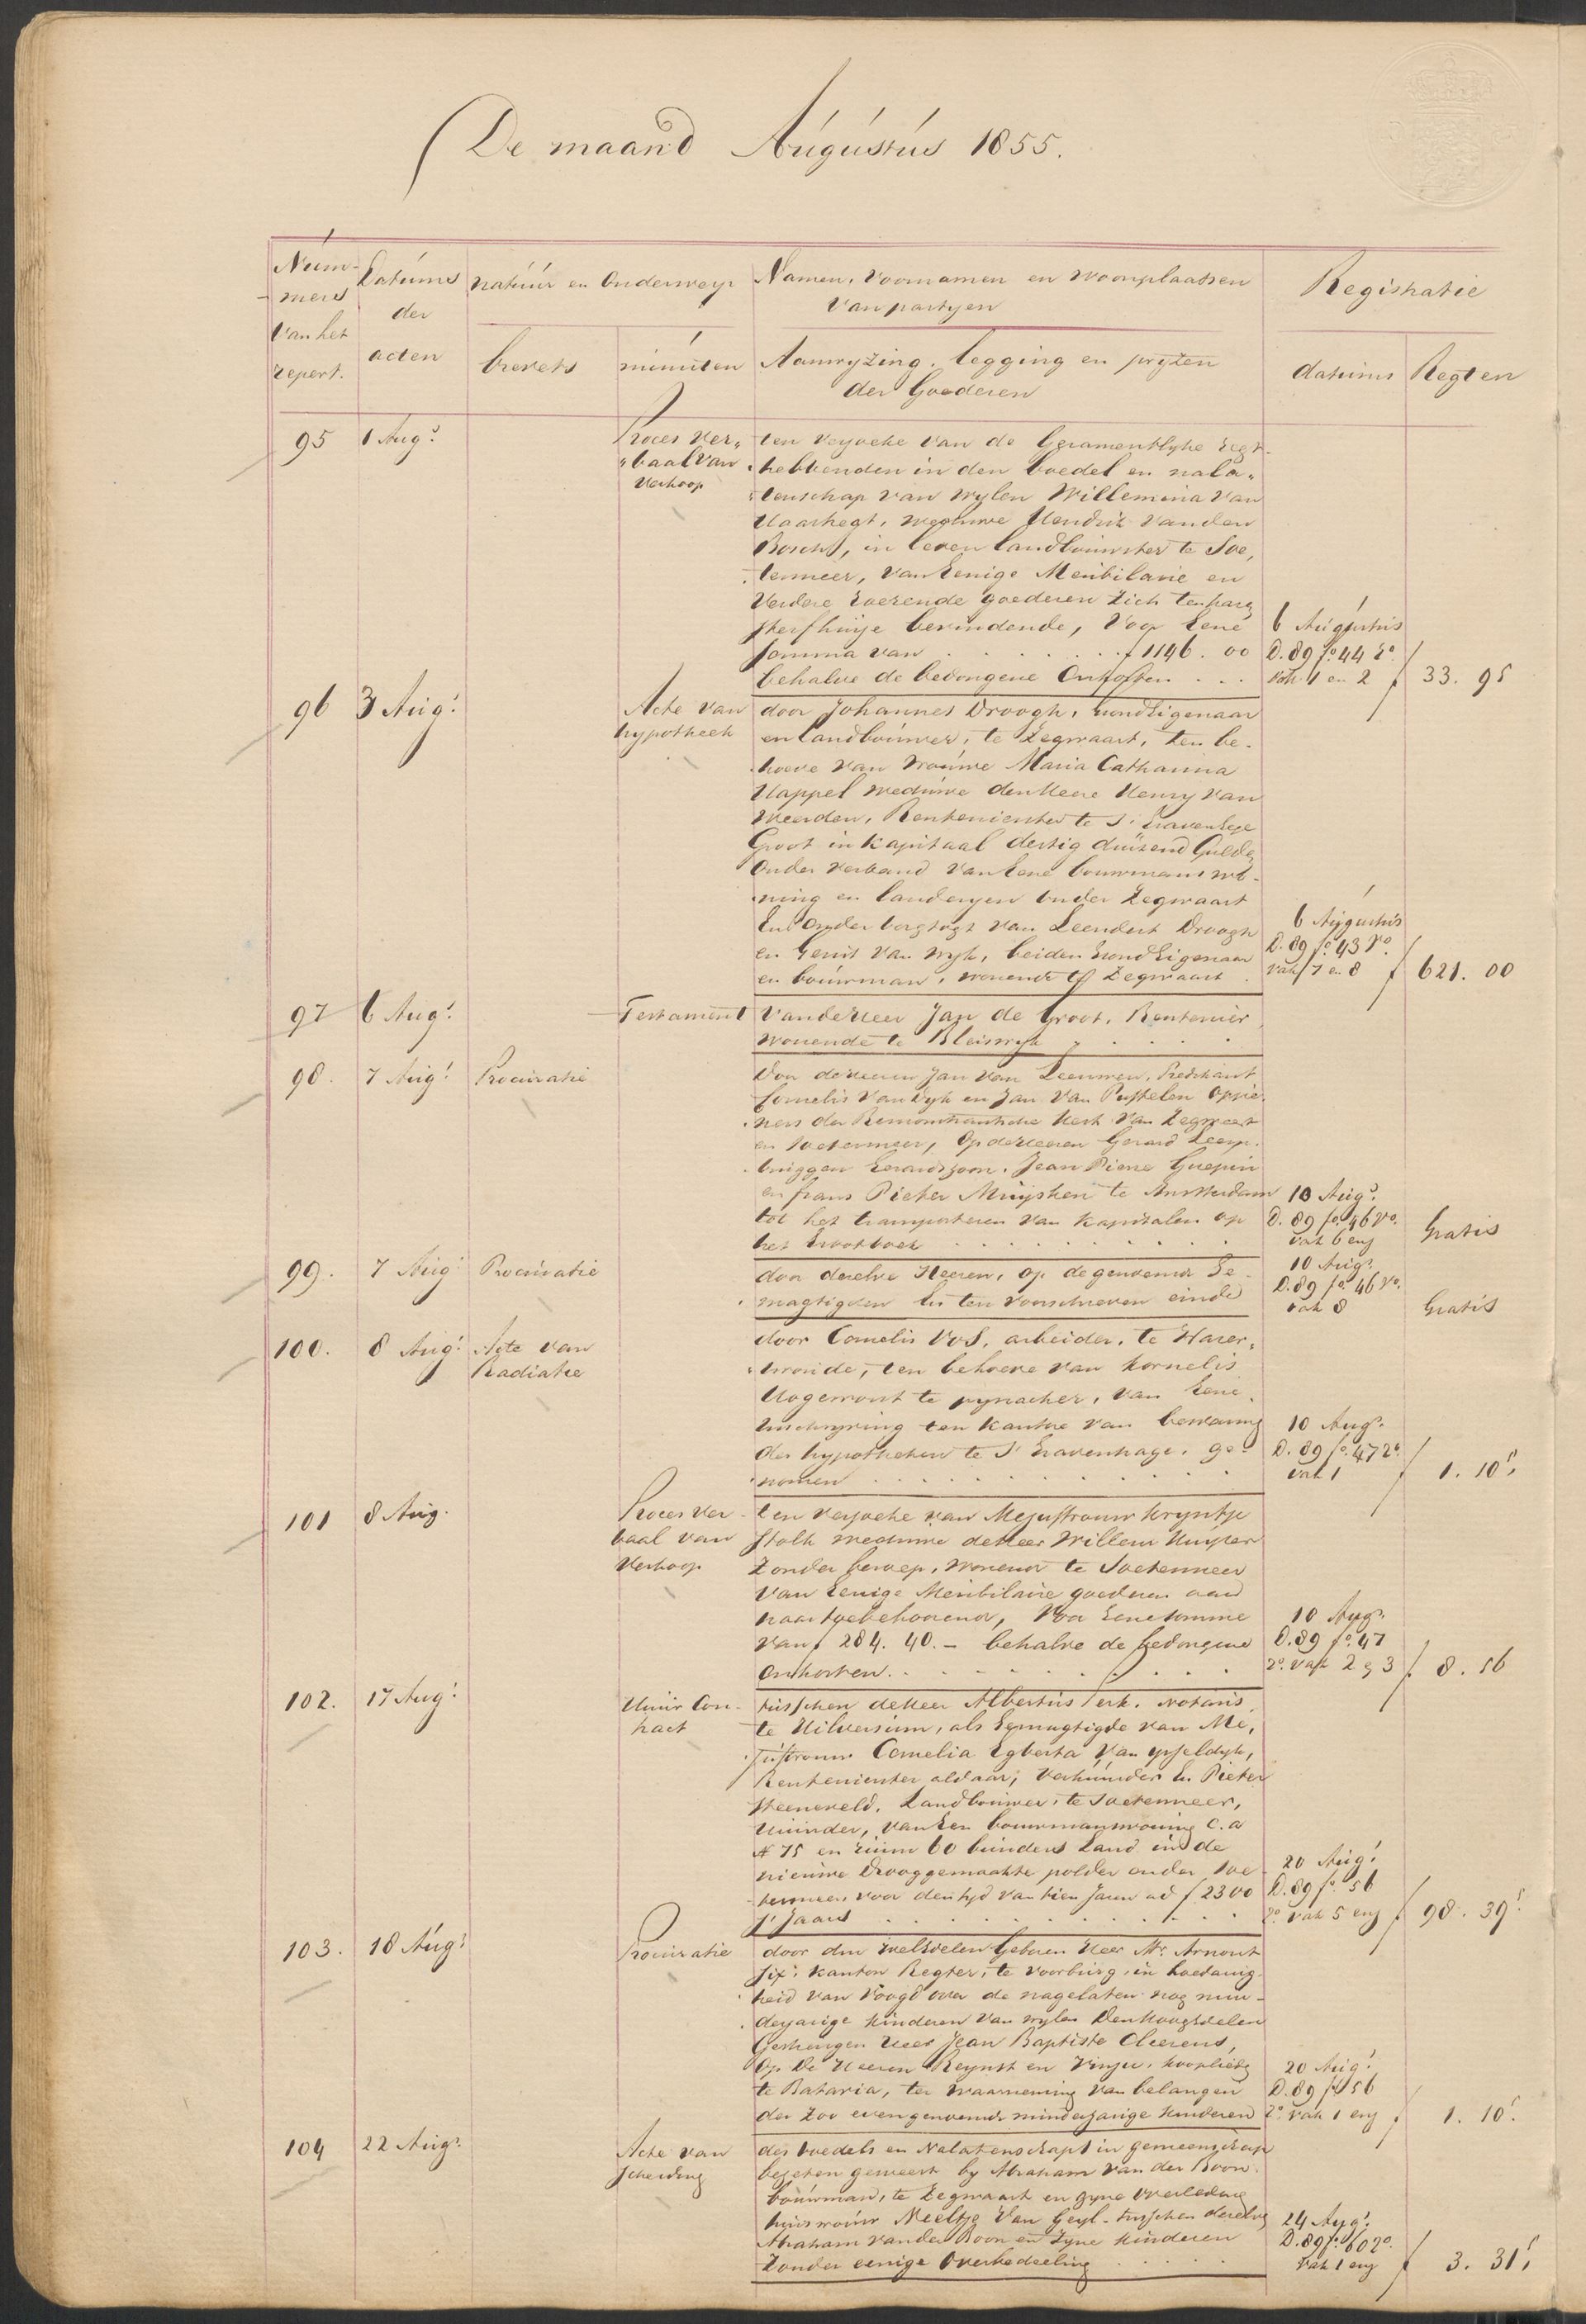 De maand Augustus 1855.
Num-
mers
van het
repert.
Datums
der
acten
natuur en Onderwerp
brevets
minuten
Namen, Voornamen en Woonplaatsen
van partyen
Aanwyzing, legging en pryzen
der Goederen
Registratie
datums
Regten
95
1 Augs
Proces ver„
„baal van
verkoop
ten verzoeke van de Gezamentlyke regt-
hebbenden in den boedel en nala„
tenschap van wylen Willemina van
Haastregt, weduwe Hendrik vanden
Bosch, in leven landbouwster te Soe,
termeer, van Eenige Meubilaire en
verdere roerende goederen zich tenharen
sterfhuize bevindende, voor Eene
somma van . . . . . . f 1146. 00
behalve de bedongene Onkosten . . .
6 Augustus
D. 89 fo. 44 ro.
vak 1 en 2
f 33. 95
96
3 Augs
Acte van
hypotheek
door Johannes Droogh, GrondEigenaar
en Landbouwer, te Zegwaart, ten be-
hoeve van Vrouwe Maria Catharina
Happel weduwe den Heere Henry van
Weerden, Rentenierster te S'Gravenhage
Groot in Kapitaal dertig duizend Gulden
Onder verband van Eene bouwmanswo-
ning en landeryen onder Zegwaart
En Onder borgtogt van Leendert Droogh
en Gerrit van Wyk, beiden GrondEigenaar
en bouwman, wonende te Zegwaart .
6 Augustus
D. 89 fo. 43 vo.
vak 7 en 8
f 621. 00
97
6 Augs.
Testament
van de Heer Jan de Groot, Rentenier,
wonende te Bleiswyk . . . . .
98.
7 Augs
Procuratie
Door de Heeren Jan van Leeuwen, Predikant
Cornelis van Dyk en Jan van Pustelen Opzie-
ners der Remonstrantsche Kerk van Zegwaart
en Soetermeer, Op de Heeren Gerard
bruggen Gerardszoon, Jean Pierre Guepin
en frans Pieter Muysken te Amsterdam
tot het transporteren van Kapitalen op
het Grootboek . . . . . . . . .
10 Augs.
D. 89 fo. 46 vo.
vak 6 en 7
Gratis
99.
7 Augs
Procuratie
door dezelve Heeren, op de genoemde Ge-
magtigden en ten voorschreven einde
10 Augs.
D. 89 fo. 46 vo.
vak 8
Gratis
100.
8 Augs
Acte van
Radiatie
door Cornelis Vos, arbeider, te Hazer,
woude, ten behoeve van Kornelis
Hogervorst te pynacker, van Eene
Inschryving ten Kantore van bewaring
der hypotheken te S'Gravenhage, ge-
nomen . . . . . . . . . . .
10 Augs.
D. 89 fo. 47 ro.
vak 1
f 1. 10 5
101
8 Aug.
Proces ver-
baal van
Verkoop
ten verzoeke van Mejuffrouw Kryntje
Stolk weduwe de Heer Willem Kuyper
Zonder beroep, wonende te Soetermeer
van Eenige Meubilaire goederen aan
haar toebehoorende, Voor Eene somme
van f 284. 40. – behalve de bedongene
Onkosten . . . . . . . . .
10 Augs.
D. 89 fo. 47
ro. vak 2 en 3
f 8. 56
102.
17 Augs
Huur Con-
tract
tusschen de Heer Albertus Perk, Notaris
te Hilversum, als Gemagtigde van Me,
juffrouw Cornelia Egberta van ysseldyk,
Rentenierster aldaar, Verhuurder En Pieter
Steeneveld, Landbouwer, te Soetermeer,
Huurder, van Een bouwmanswoning C. a
N 75 en ruim 60 bunders Land in de
nieuwe Drooggemaakte polder onder Soe-
termeer voor den tyd van tien Jaren ad f 2300
s' Jaars . . . . . . . . . .
20 Augs
D. 89 fo. 56
ro. vak 5 en 7
f 98. 39 5
103.
18 Augs
Procuratie
door den WelEdelen Geboren Heer Mr. Arnout
Six, Kanton Regter, te Voorburg, in hoedanig-
heid van Voogd over de nagelaten nog min-
derjarige Kinderen van wylen Den HoogEdelen
Gestrengen Heer Jean Baptiste Cleerens,
Op De Heeren Reynst en Vinju, Kooplieden
te Batavia, ter Waarneming van belangen
der Zoo evengenoemde minderjarige Kinderen
20 Augs
D. 89 fo. 56
ro. vak 1 en
f 1. 10 5
104
22 Augs.
Acte van
Scheiding
des boedels en Nalatenschaps in gemeenschap
bezeten geweest by Abraham van der Boon
bouwman, te Zegwaart en zyne overledene
huisvrouw Neeltje van Geyl. tusschen denzelven
Abraham van der Boon en Zyne Kinderen
Zonder eenige Overbedeeling . . . . .
24 Augs
D. 89 fo. 60 ro.
vak 1 en
f 3. 31 5